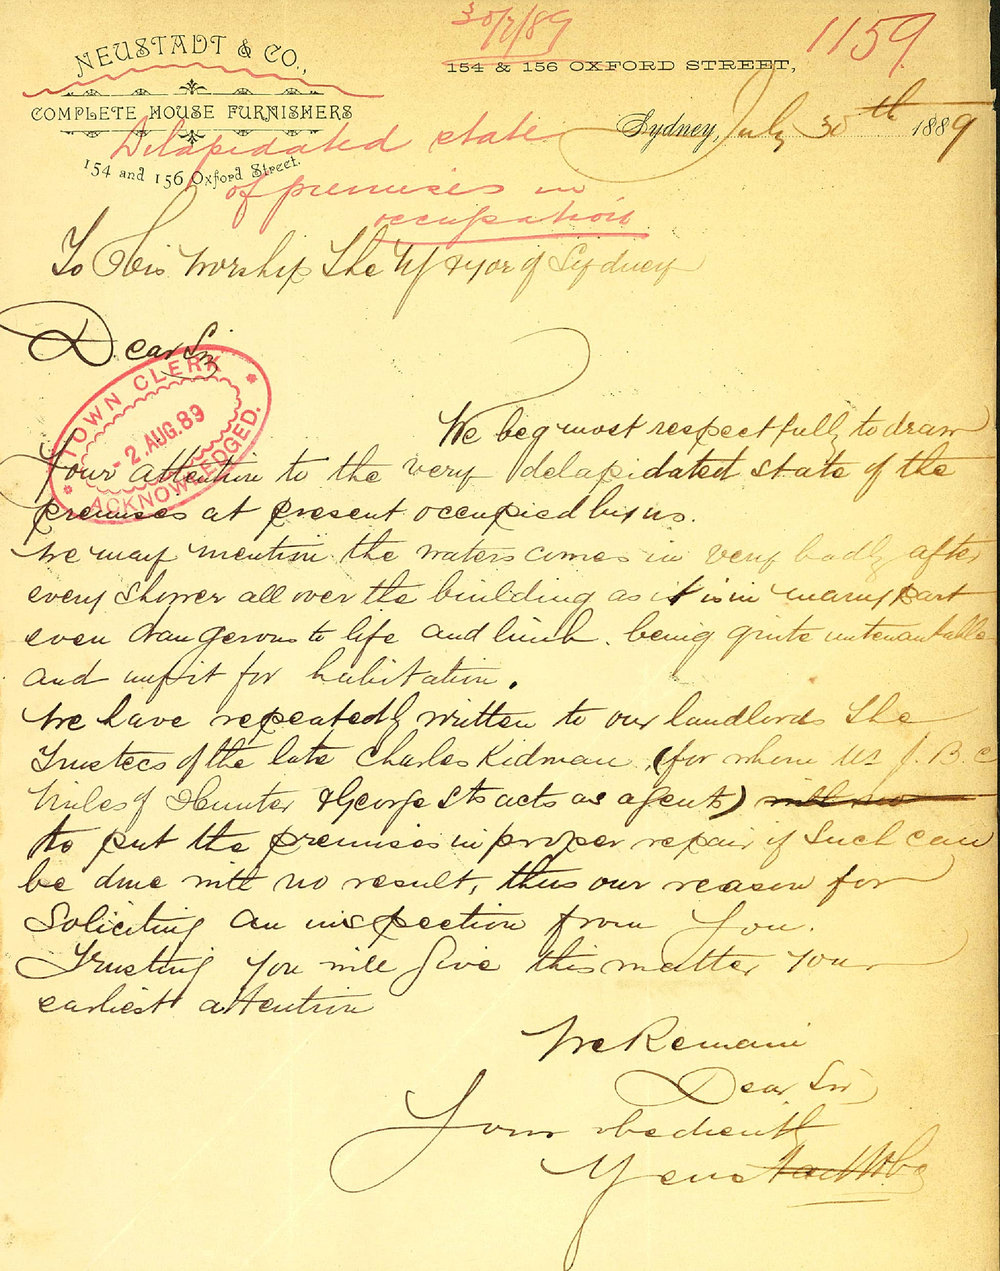 30/7/89
1159
NEUSTADT & CO.,
COMPLETE HOUSE FURNISHERS
154 and 156 Oxford Street.
154 & 156 OXFORD STREET,
Sydney, July 30th 1889
Delapidated state
of premises in
occupation
To His Worship The Mayor of Sydney
Dear Sir
TOWN CLERK
- 2. AUG. 89
ACKNOWLEDGED.
We beg most respectfully to draw
Your attention to the very delapidated state of the
premises at present occupied by us.
We may mention the waters comes in very badly after
every shower all over the building as it is in many part
even dangerous to life and limb. being quite untenantable
and unfit for habitation.
We have repeatedly written to our landlords The
Trustees of the late Charles Kidman, (for whom Mr J. B. C
Miles of Hunter & George Sts acts as agents)
to put the premises in proper repair if such can
be done with no result, thus our reason for
Soliciting an inspection from You.
Trusting You will give this matter Your
earliest attention
We Remain
Dear Sir
Yours obediently
Neustadt & Co